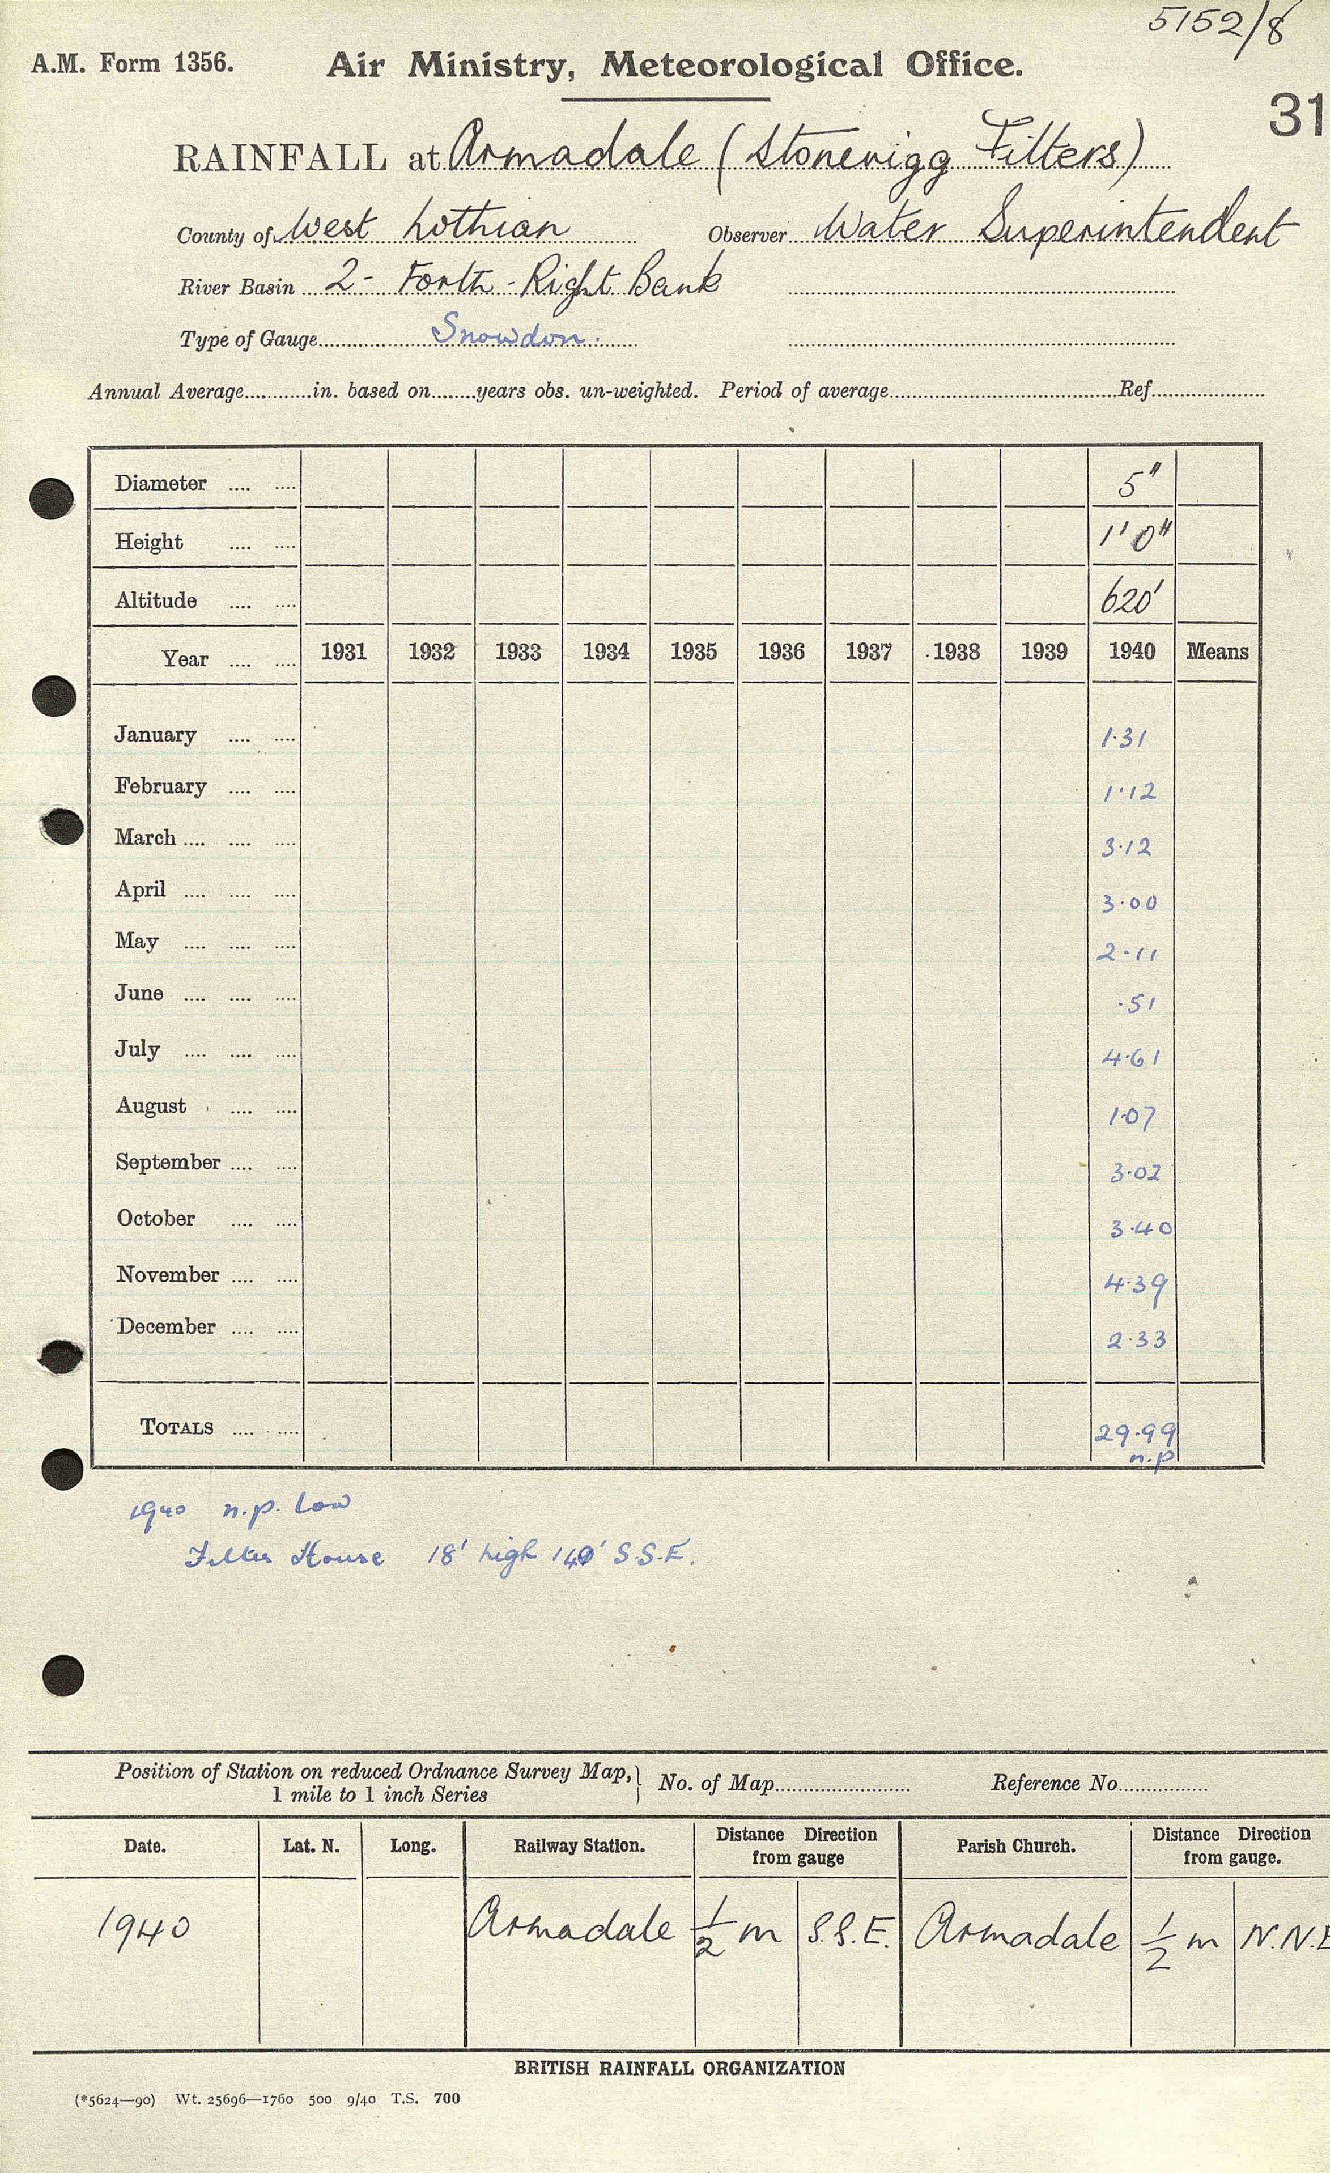 5152/8
A.M. Form 1356. Air Ministry, Meteorological Office.
31
RAINFALL at Armadale (Stonerigg Filters)
County of West Lothian Observer Water Superintendent
River Basin 2 - Forth - Right Bank
Type of Gauge Snowdon.
Annual Average............in. based on........years obs. un-weighted. Period of average........................................Ref....................
Diameter .... .... 5"
Height .... .... 1' 0"
Altitude .... .... 620'
Year .... .... 1931 1932 1933 1934 1935 1936 1937 1938 1939 1940 Means
January .... .... 1.31
February .... .... 1.12
March .... .... .... 3.12
April .... .... .... 3.00
May .... .... .... 2.11
June .... .... .... .51
July .... .... .... 4.61
August .... .... 1.07
September .... .... 3.02
October .... .... 3.40
November .... .... 4.39
December .... .... 2.33
TOTALS .... .... 29.99
n.p
1940 n.p. Low
Filter House 18' high 140' S.S.E.
Position of Station on reduced Ordnance Survey Map,} No. of Map........................ Reference No................
1 mile to 1 inch Series
Date. Lat. N. Long. Railway Station. Distance Direction from gauge Parish Church. Distance Direction from gauge.
1940 Armadale 1/2 m S.S.E. Armadale 1/2 m N.N.E
BRITISH RAINFALL ORGANIZATION
(*5624—90) Wt. 25696—1760 500 9/40 T.S. 700